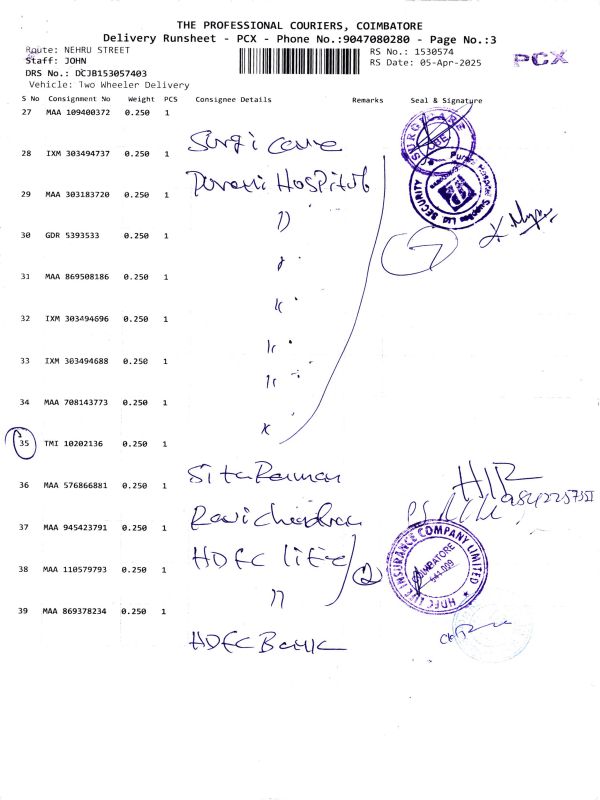 THE PROFESSIONAL COURIERS, COIMBATORE
Delivery Runsheet - PCX - Phone No.:9047080280 - Page No.:3
Route: NEHRU STREET
Staff: JOHN
DRS No.: DCJB153057403
Vehicle: Two Wheeler Delivery
RS No.: 1530574
RS Date: 05-Apr-2025
PCX
S No Consignment No Weight PCS Consignee Details Remarks Seal & Signature
27 MAA 109400372 0.250 1
Surgi care
28 IXM 303494737 0.250 1
Hospital
29 MAA 303183720 0.250 1
30 GDR 5393533 0.250 1
31 MAA 869508186 0.250 1
32 IXM 303494696 0.250 1
33 IXM 303494688 0.250 1
34 MAA 708143773 0.250 1
35 TMI 10202136 0.250 1
SitaRaman
36 MAA 576866881 0.250 1
Ravichandran
37 MAA 945423791 0.250 1
HDFC life
38 MAA 110579793 0.250 1
2
39 MAA 869378234 0.250 1
HDFC Bank
7
HDFC LIFE INSURANCE COMPANY LIMITED
COIMBATORE
641 009